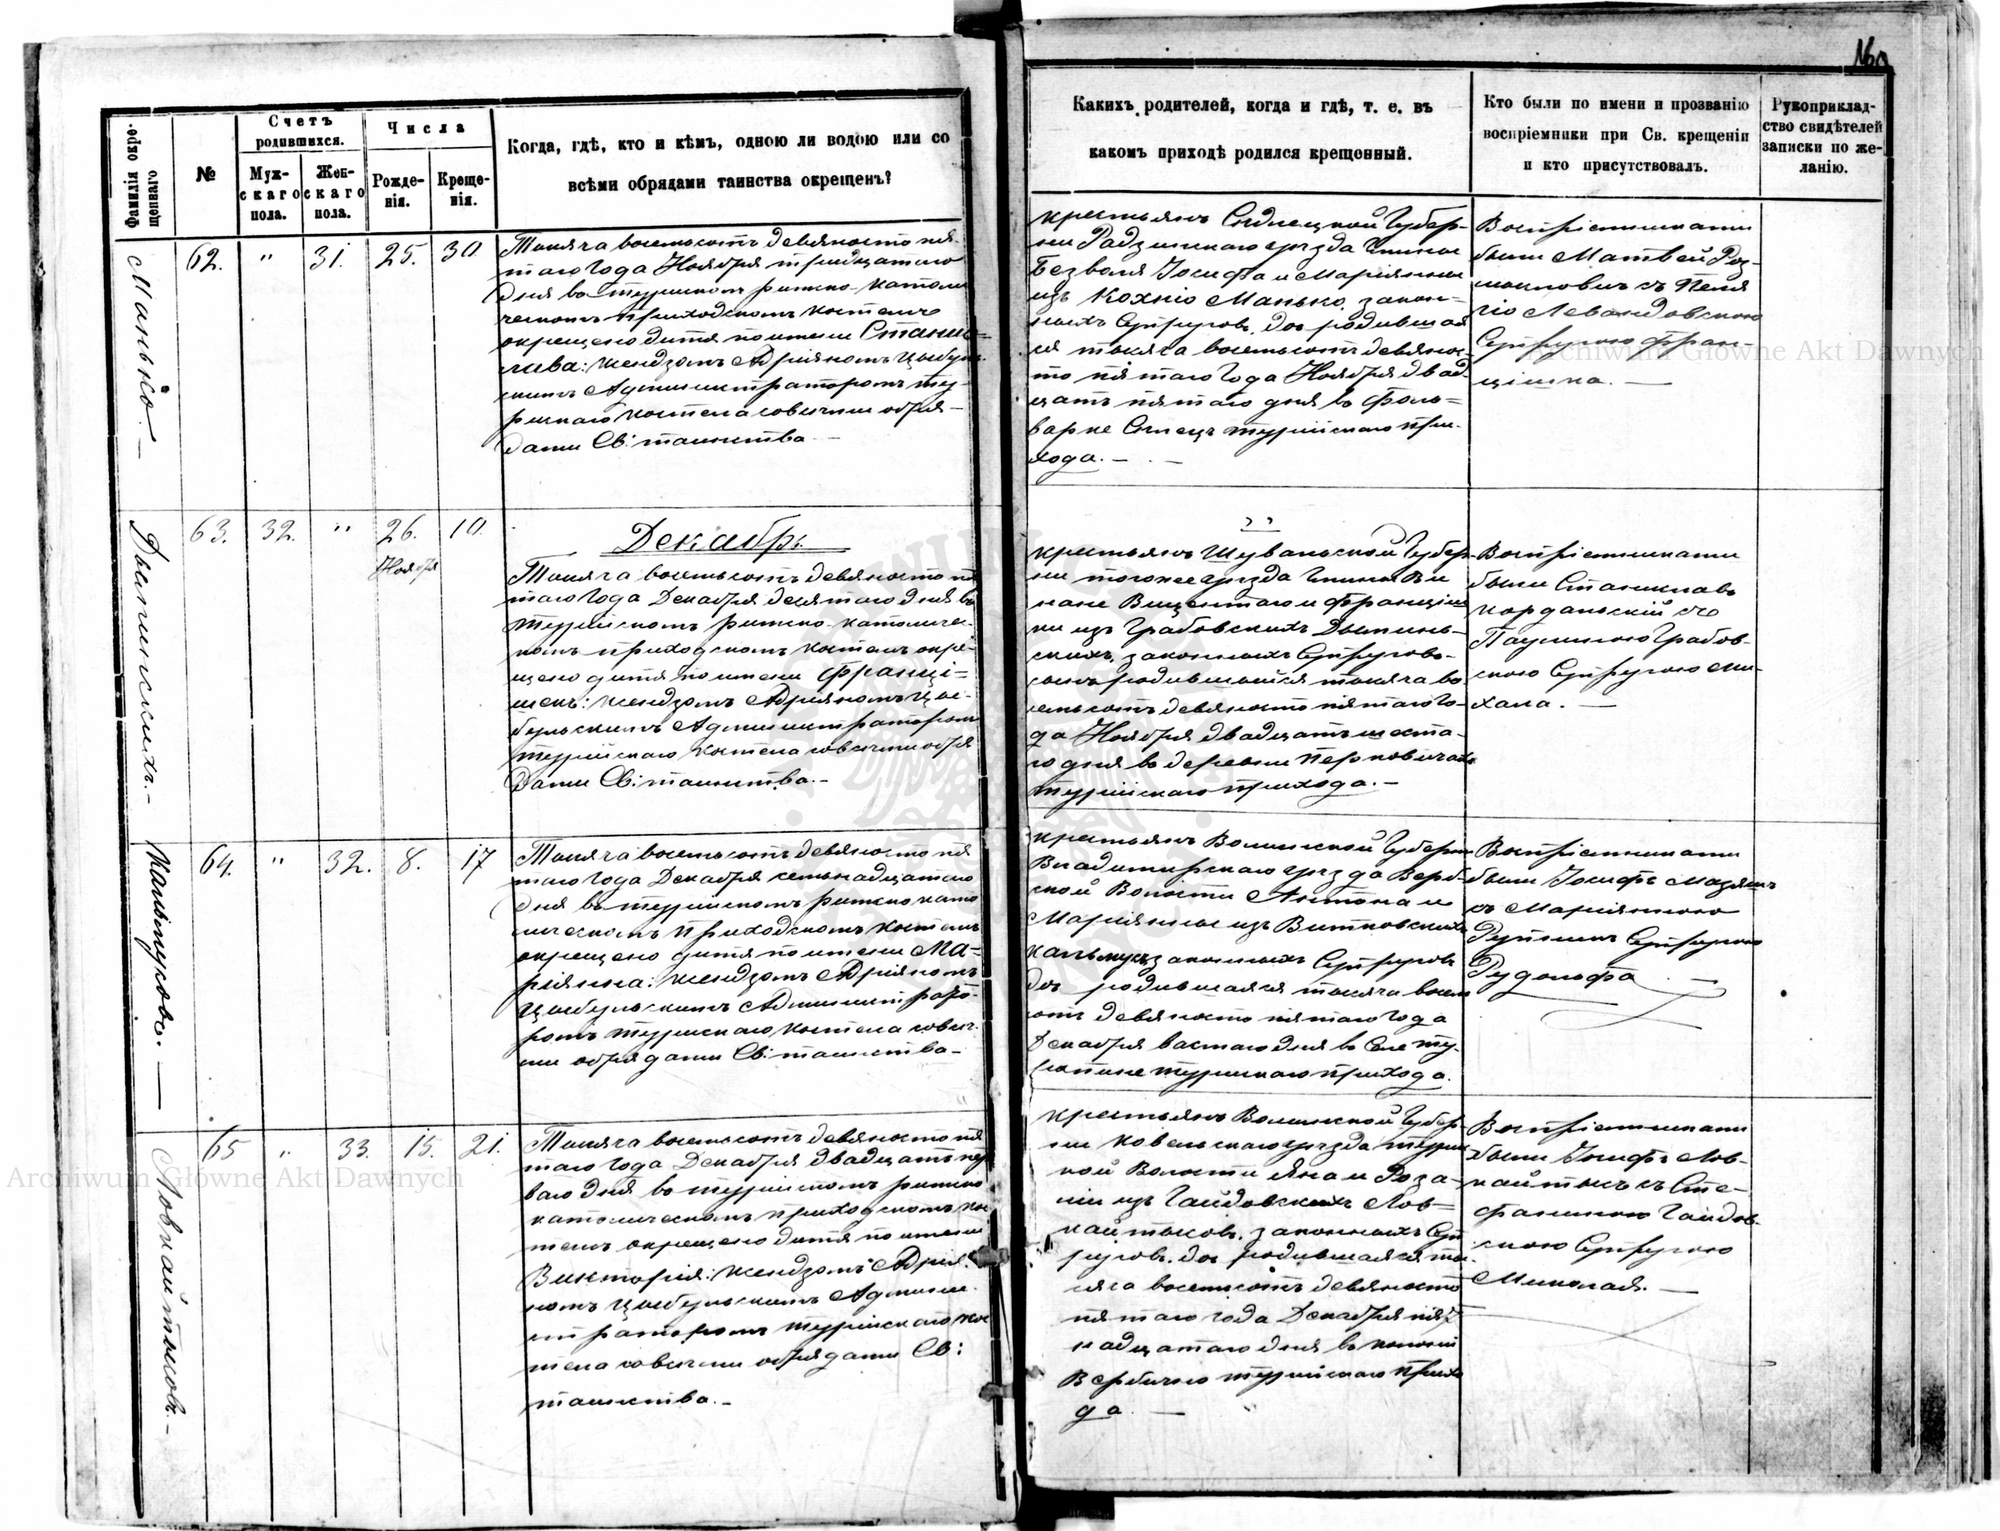 160
Фамилія окре-
щенаго
№
Счетъ
родившихся.
Муж-
скаго
пола.
Жен-
скаго
пола.
Числа
Рожде-
нія.
Креще-
нія.
Когда, гдѣ, кто и кѣмъ, одною ли водою или со
всѣми обрядами таинства окрещенъ?
Каких̾ъ родителей, когда и гдѣ, т. е. въ
какомъ приходѣ родился крещенный.
Кто были по имени и прозванію
воспріемники при Св. крещеніи
и кто присутствовалъ.
Рукоприклад-
ство свидѣтелей
записки по же-
ланію.
Манько. —
62. " 31. 25. 30.
Тысяча восемьсотъ девяносто пя-
таго года Ноября тридцатаго
дня въ турійскомъ римско-католи
ческомъ приходскомъ костелѣ
окрещено дитя по имени Станис-
лава: ксендзомъ Адріяномъ Цыбуль
скимъ Администраторомъ ту-
рійскаго костела со всѣми обря-
дами Св: таинства —
крестьянъ Сѣдлецкой Губер-
ніи Радзинскаго уѣзда гмины
Безволя Іосифа и Маріянны
изъ Манько, закон-
ныхъ Супруговъ дочь родившая
ся тысяча восемьсотъ девянос-
то пятаго года Ноября двад-
цать пятаго дня въ фоль-
варке турійскаго при-
хода. —
Воспріемниками
были Матвей
съ
Левандовскою
Супругою Фран-
цишка. —
Дыминскихъ. —
63. 32. " 26. 10.
Ноября
Декабрь
Тысяча восемьсотъ девяносто пя
таго года Декабря десятаго дня въ
турійскомъ римско-католиче-
комъ приходскомъ костелѣ окре-
щено дитя по имени Франци-
шекъ: ксендзомъ Адріяномъ Цы-
бульскимъ Администраторомъ
турійскаго костела со всѣми обря
дами Св: таинства. —
крестьянъ Губер-
ніи тогоже уѣзда гмины
Вицентаго и Францыш
ки изъ Грабовскихъ Дыминь-
скихъ, законныхъ Супруговъ
сынъ родившыйся тысяча во
семьсотъ девяносто пятаго го-
да Ноября двадцать шеста-
го дня въ деревни Перковичахъ
турійскаго прихода. —
Воспріемниками
были Станиславъ
кордальскій съ
Паулиною Грабов-
скою Супругою Ми-
хала. —
Кальмуковъ. —
64. " 32. 8. 17
Тысяча восемьсотъ девяносто пя
таго года Декабря семьнадцатаго
дня въ турійскомъ римско като
лическомъ приходскомъ костелѣ
окрещено дитя по имени Ма-
ріянна: ксендзомъ Адріяномъ
Цыбульскимъ Администрато-
ромъ турійскаго костела со всѣ-
ми обрядами Св: таинства —
крестьянъ Волынской Губерни
Владимирскаго уѣзда Верб-
ской Волости Антона и
Маріянны изъ Витковскихъ
законныхъ Супруговъ
дочь родившаяся тысяча восем
сотъ девяносто пятаго года
Декабря восмаго дня въ Селе Ту-
турійскаго прихода.
Воспріемниками
были Іосифъ
съ Маріянною
Супругою
Рудольфа —
Ловкайтысовъ. —
65 " 33. 15. 21.
Тысяча восемьсотъ девяносто пя
таго года Декабря двадцать пер
ваго дня въ турійскомъ римско
католическомъ приходскомъ ко
стелѣ окрещено дитя по имени
Викторія: ксендзомъ Адрія-
номъ Цыбульскимъ Админи-
страторомъ турійскаго ко
стела со всѣми обрядами Св:
таинства. —
крестьянъ Волынской Губер-
ніи Ковельскаго уѣзда турій
ской Волости Яна и Роза-
ліи изъ Гайдовскихъ Лов-
кайтысов, законныхъ Су
пруговъ, дочь родившаяся ты
сяча восемьсотъ девяносто
пятаго года Декабря пят
надцатаго дня въ колоніи
Вербично турійскаго прихо
да. —
Воспріемниками
были Іосифъ Лов-
кайтысъ съ Сте-
фаніею Гайдов-
скою Супругою
Миколая. —
Archiwum Główne Akt Dawnych
Archiwum Główne Akt Dawnych